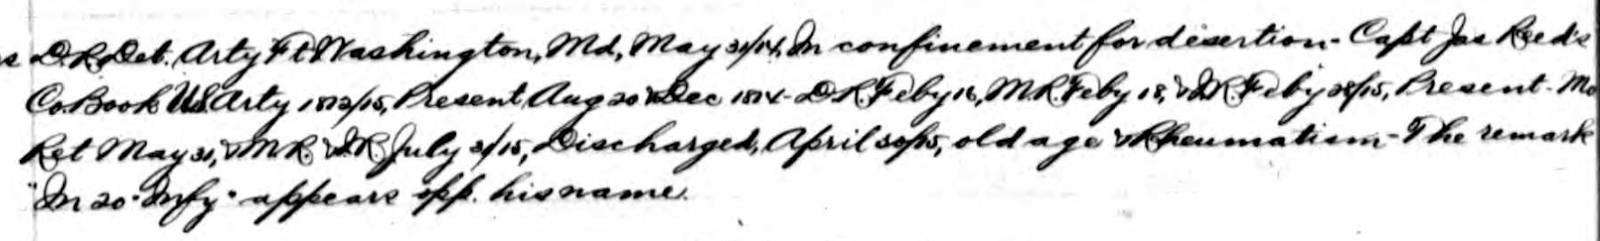 D.R. Det. Arty Ft Washington, Md, May 31/14, In confinement for desertion - Capt Jas Reed's
Co. Book U.S. Arty 1812/15, Present, Aug 20 & Dec 1814 - D.R. Feby 16, M.R. Feby 18, & I.R. Feby 28/15, Present - Mo
Ret May 31, & M.R. & I.R. July 31/15, Discharged, April 30/15, old age & Rheumatism - The remark
"In 20" Infy" appears opp. his name.